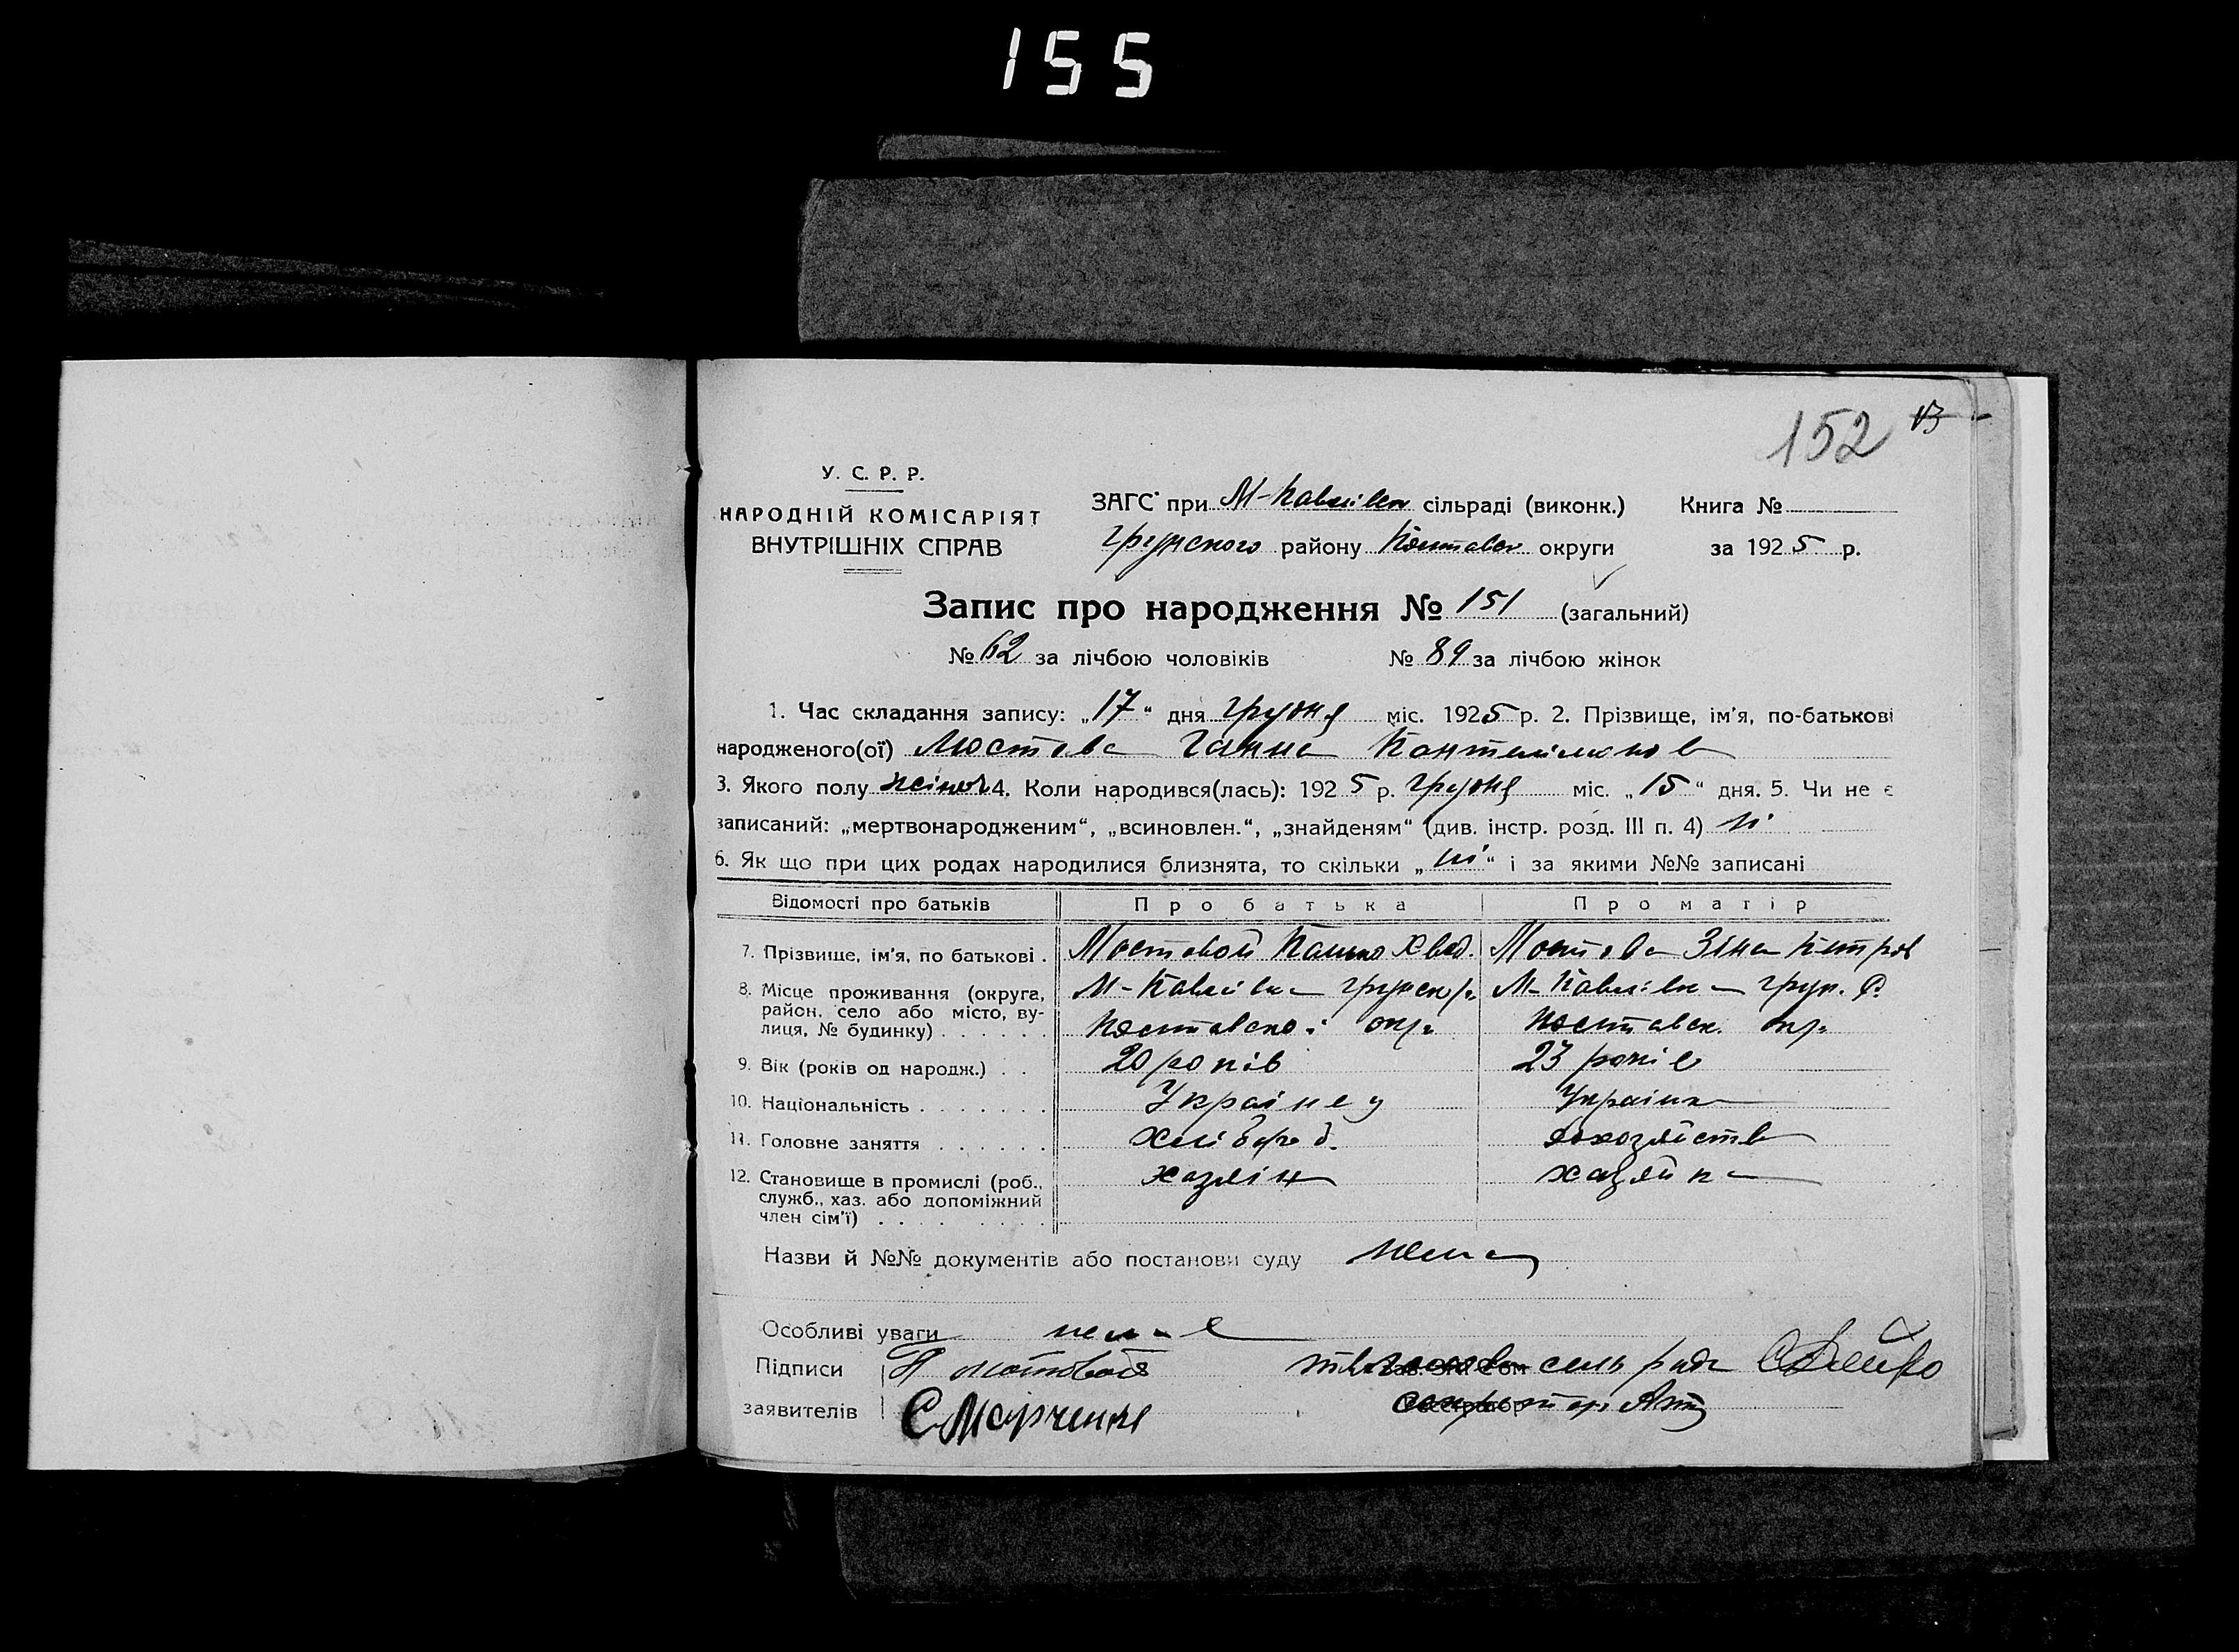 155
152
У. С. Р. Р.
НАРОДНІЙ КОМІСАРІЯТ
ВНУТРІШНІХ СПРАВ
ЗАГС при М-Павлівск сільраді (виконк.) Книга №
Грунского району Полтавск округи за 1925 р.
Запис про народження № 151 (загальний)
№ 62 за лічбою чоловіків № 89 за лічбою жінок
1. Час складання запису: „17“ дня грудня міс. 1925 р. 2. Прізвище, ім'я, по-батькові
народженого(ої) Мостова Ганна Пантелимонов
3. Якого полу жіноч 4. Коли народився(лась): 1925 р. грудня міс. „15“ дня. 5. Чи не є
записаний: „мертвонародженим“, „всиновлен.“, „знайденям“ (див. інстр. розд. III п. 4) ні
6. Як що при цих родах народилися близнята, то скільки „ні“ і за якими №№ записані
Відомості про батьків Про батька Про матір
7. Прізвище, ім'я, по батькові . Мостовой Панько Хвед. Мостова Зіна Петров
8. Місце проживання (округа, район, село або місто, вулиця, № будинку) М-Павлівка Грунск р. М-Павлівка Грун. Р.
Полтавскоі окр. Полтавск. окр.
9. Вік (років од народж.) . . 20 років 23 років
10. Національність . . . . . . . Українец Українка
11. Головне заняття . . . . . . хлібороб. дохозяйств
12. Становище в промислі (роб., служб., хаз. або допоміжний член сім'ї) хазяін хазяйка
Назви й №№ документів або постанови суду нема
Особливі уваги немає
Підписи П Мостовой голова сель ради
заявителів С Марченко секретар